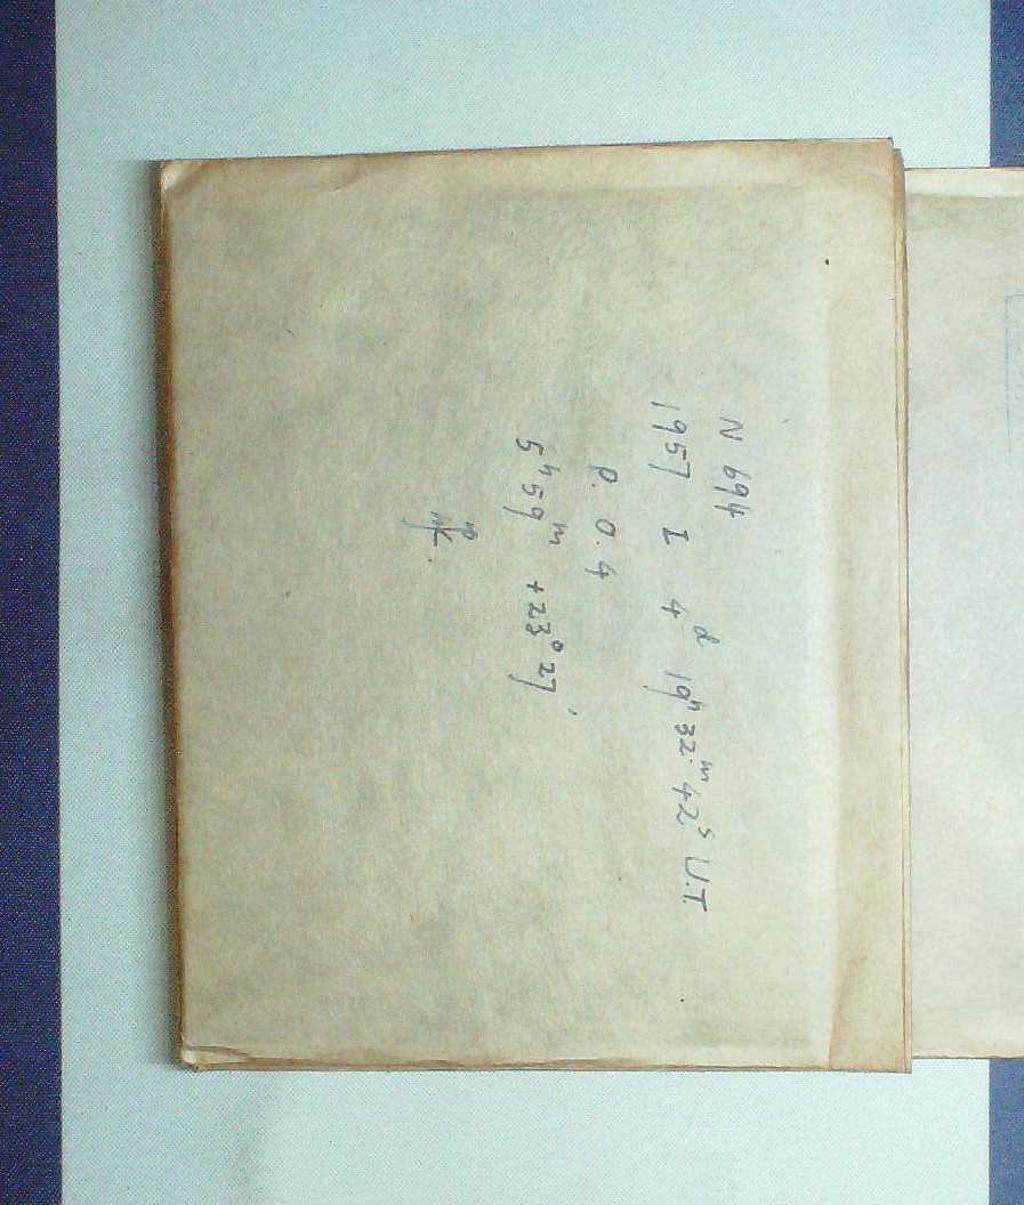 N 694
1957 I 4ᵈ 19ʰ 32ᵐ 42ˢ U.T.
P. O. 4
5ʰ 59ᵐ +23° 27′